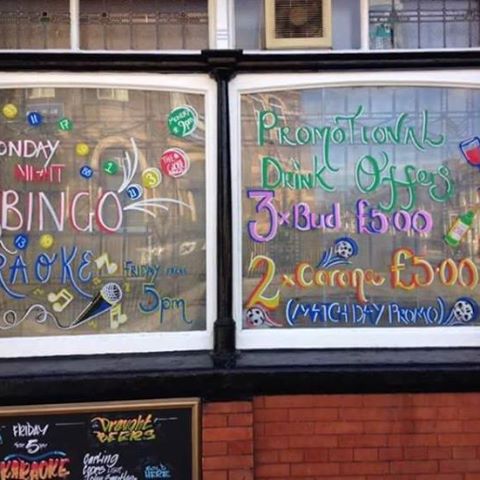 MONDAY
NIGHT
BINGO
MONDAY
9pm
KARAOKE
FRIDAY FROM
5pm
PROMOTIONAL
DRINK Offers
3 x Bud £5.00
2 x Corona £5.00
(MATCH DAY PROMO)
FRIDAY
5
KARAOKE
Draught
BEERS
Carling
SOLD
HERE